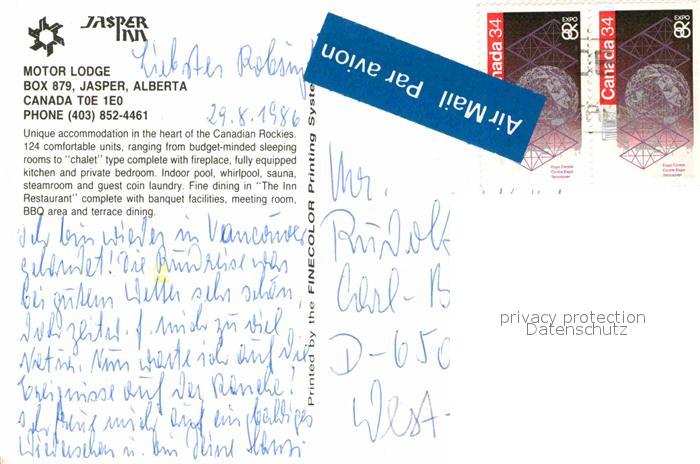 JASPER INN
MOTOR LODGE
BOX 879, JASPER, ALBERTA
CANADA T0E 1E0
PHONE (403) 852-4461
Unique accommodation in the heart of the Canadian Rockies.
124 comfortable units, ranging from budget-minded sleeping
rooms to "chalet" type complete with fireplace, fully equipped
kitchen and private bedroom. Indoor pool, whirlpool, sauna,
steamroom and guest coin laundry. Fine dining in "The Inn
Restaurant" complete with banquet facilities, meeting room,
BBQ area and terrace dining.
Liebster
29.8.1986
Ich bin wieder in Vancouver
gelandet! Die Rundreise war
bei gutem Wetter sehr schön,
f. mich zu viel
Natur. Nun warte ich auf die
Ereignisse auf der Ranche!
Ich freue mich auf ein baldiges
Wiedersehen u. bin Deine
Printed by the FINECOLOR Printing Syste
Air Mail Par avion
Canada 34
EXPO 86
Expo Centre
Centre Expo
Vancouver
Canada 34
EXPO 86
Expo Centre
Centre Expo
Vancouver
Carl-B
D-650
West-
privacy protection
Datenschutz